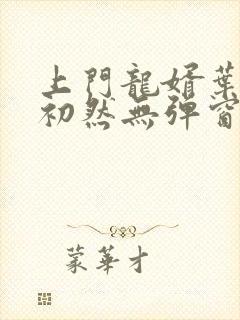 上門龍婿葉
初然無彈窗
蒙華才